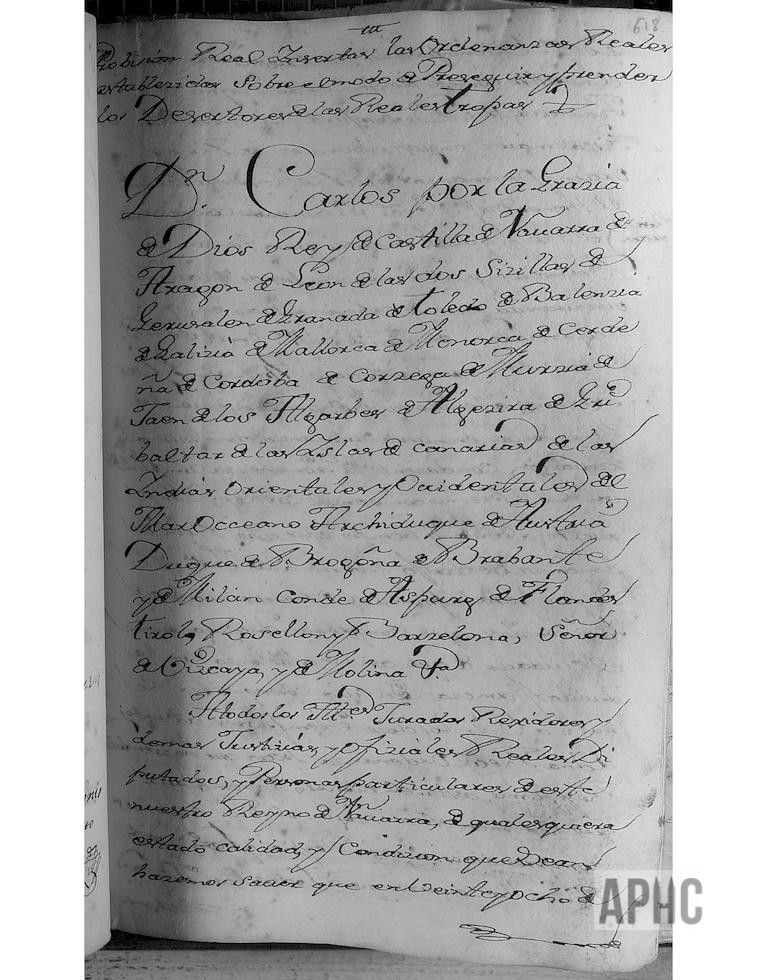 618
Probision Real Insertas las Ordenanzas Reales
establezidas sobre el modo de Proseguir y prender
los Desertores de las Reales tropas
Dn. Carlos por la Grazia
de Dios Rey de Castilla de Nauarra de
Aragon de Leon de las dos Sizillas de
Gerusalen de Granada de toledo de Balenzia
de Galizia de Mallorca de Menorca de Cerde
ña de Cordoba de Corzega de Murzia de
Jaen de los Algarbes de Algezira de Gri
baltar de las Islas de canarias de las
Indias Orientales y Ocidentales del
Mar Occeano Archiduque de Austria
Duque de Brogoña de Brabante
y de Milan Conde de Aspurg de Flandes
tirol, Rosellon y Barzelona, Señor
de Vizcaya, y de Molina &a
A todos los Alldes Jurados Rexidores y
demas Justizias, y ofiziales Reales Di
putados, y Personas particulares de este
nuestro Reyno de Nauarra, de qualesquiera
estado calidad, y Condizion que sean
hazemos sauer que en Veinte y ocho de
APHC